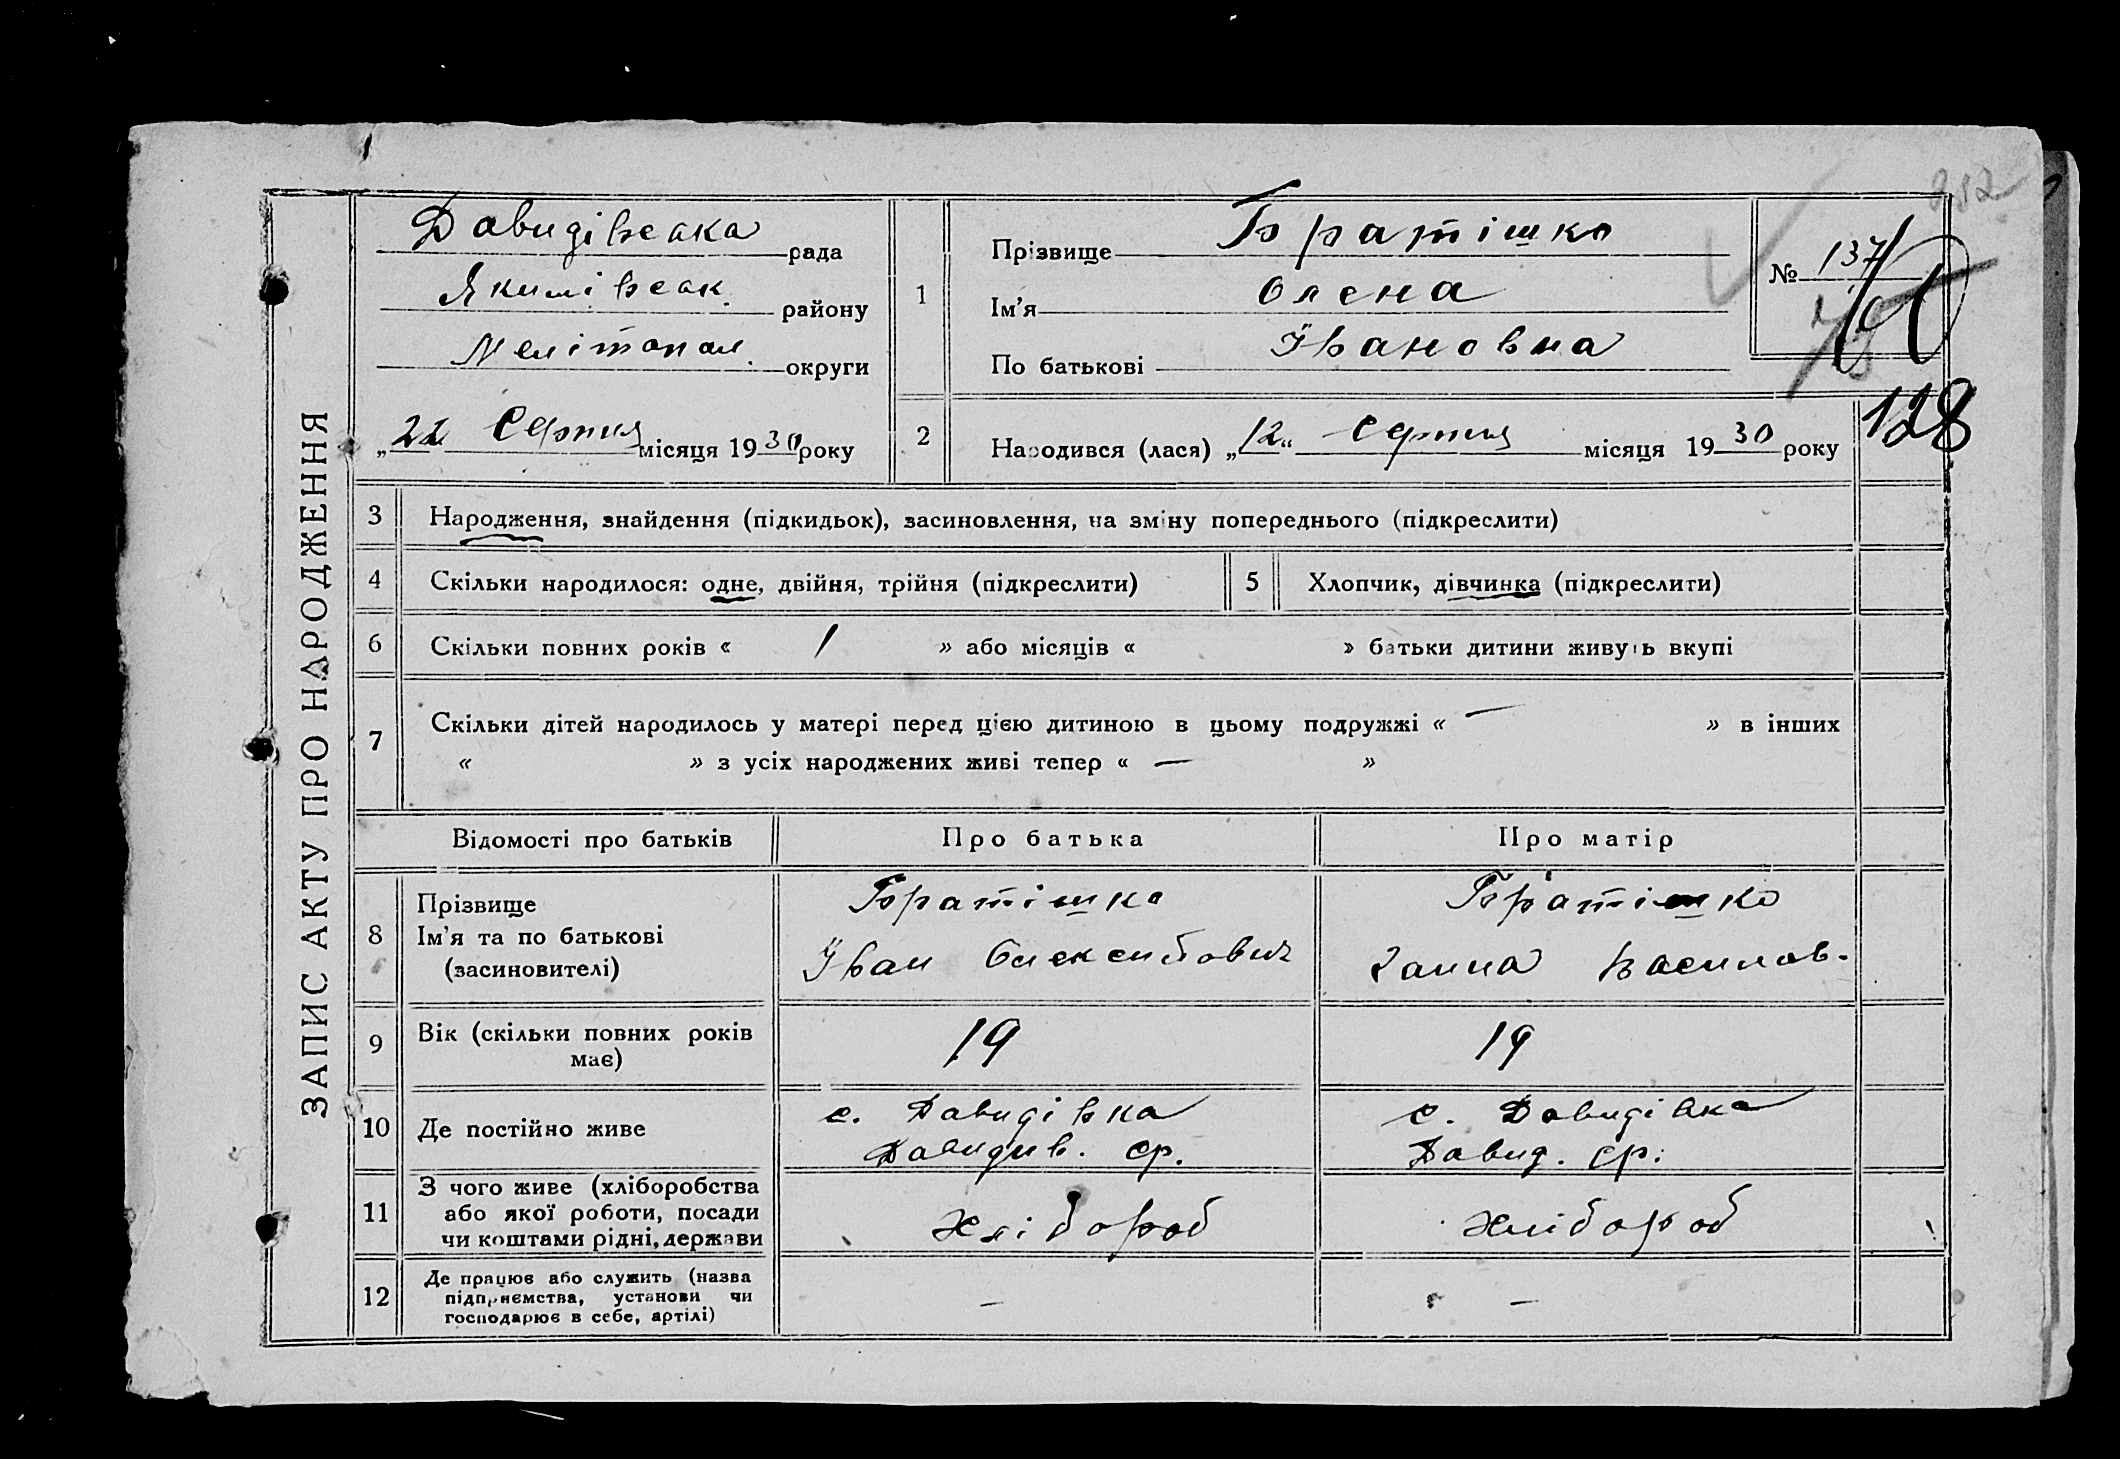 Давидівська рада
Якимівськ. району
Мелітопол. округи
„22 Серпня місяця 1930 року
1
Прізвище Братішко
Ім'я Олєна
По батькові Івановна
№ 137
128
2
Народився (лася) „12“ Серпня місяця 1930 року
ЗАПИС АКТУ ПРО НАРОДЖЕННЯ
3 Народження, знайдення (підкидьок), засиновлення, на зміну попереднього (підкреслити)
4 Скільки народилося: одне, двійня, трійня (підкреслити)
5 Хлопчик, дівчинка (підкреслити)
6 Скільки повних років « 1 » або місяців « » батьки дитини живуть вкупі
7 Скільки дітей народилось у матері перед цією дитиною в цьому подружжі « — » в інших
« » з усіх народжених живі тепер « — »
Відомості про батьків Про батька Про матір
8
Прізвище
Ім'я та по батькові
(засиновителі)
Братішко
Іван
Братішко
Ганна Василов.
9
Вік (скільки повних років
має)
19
19
10 Де постійно живе
с. Давидівка
Давидив. ср.
с. Давидівка
Давид. ср.
11
З чого живе (хліборобства
або якої роботи, посади
чи коштами рідні, держави
Хлібороб
Хлібороб
12
Де працює або служить (назва
підприємства, установи чи
господарює в себе, артілі)
—
—